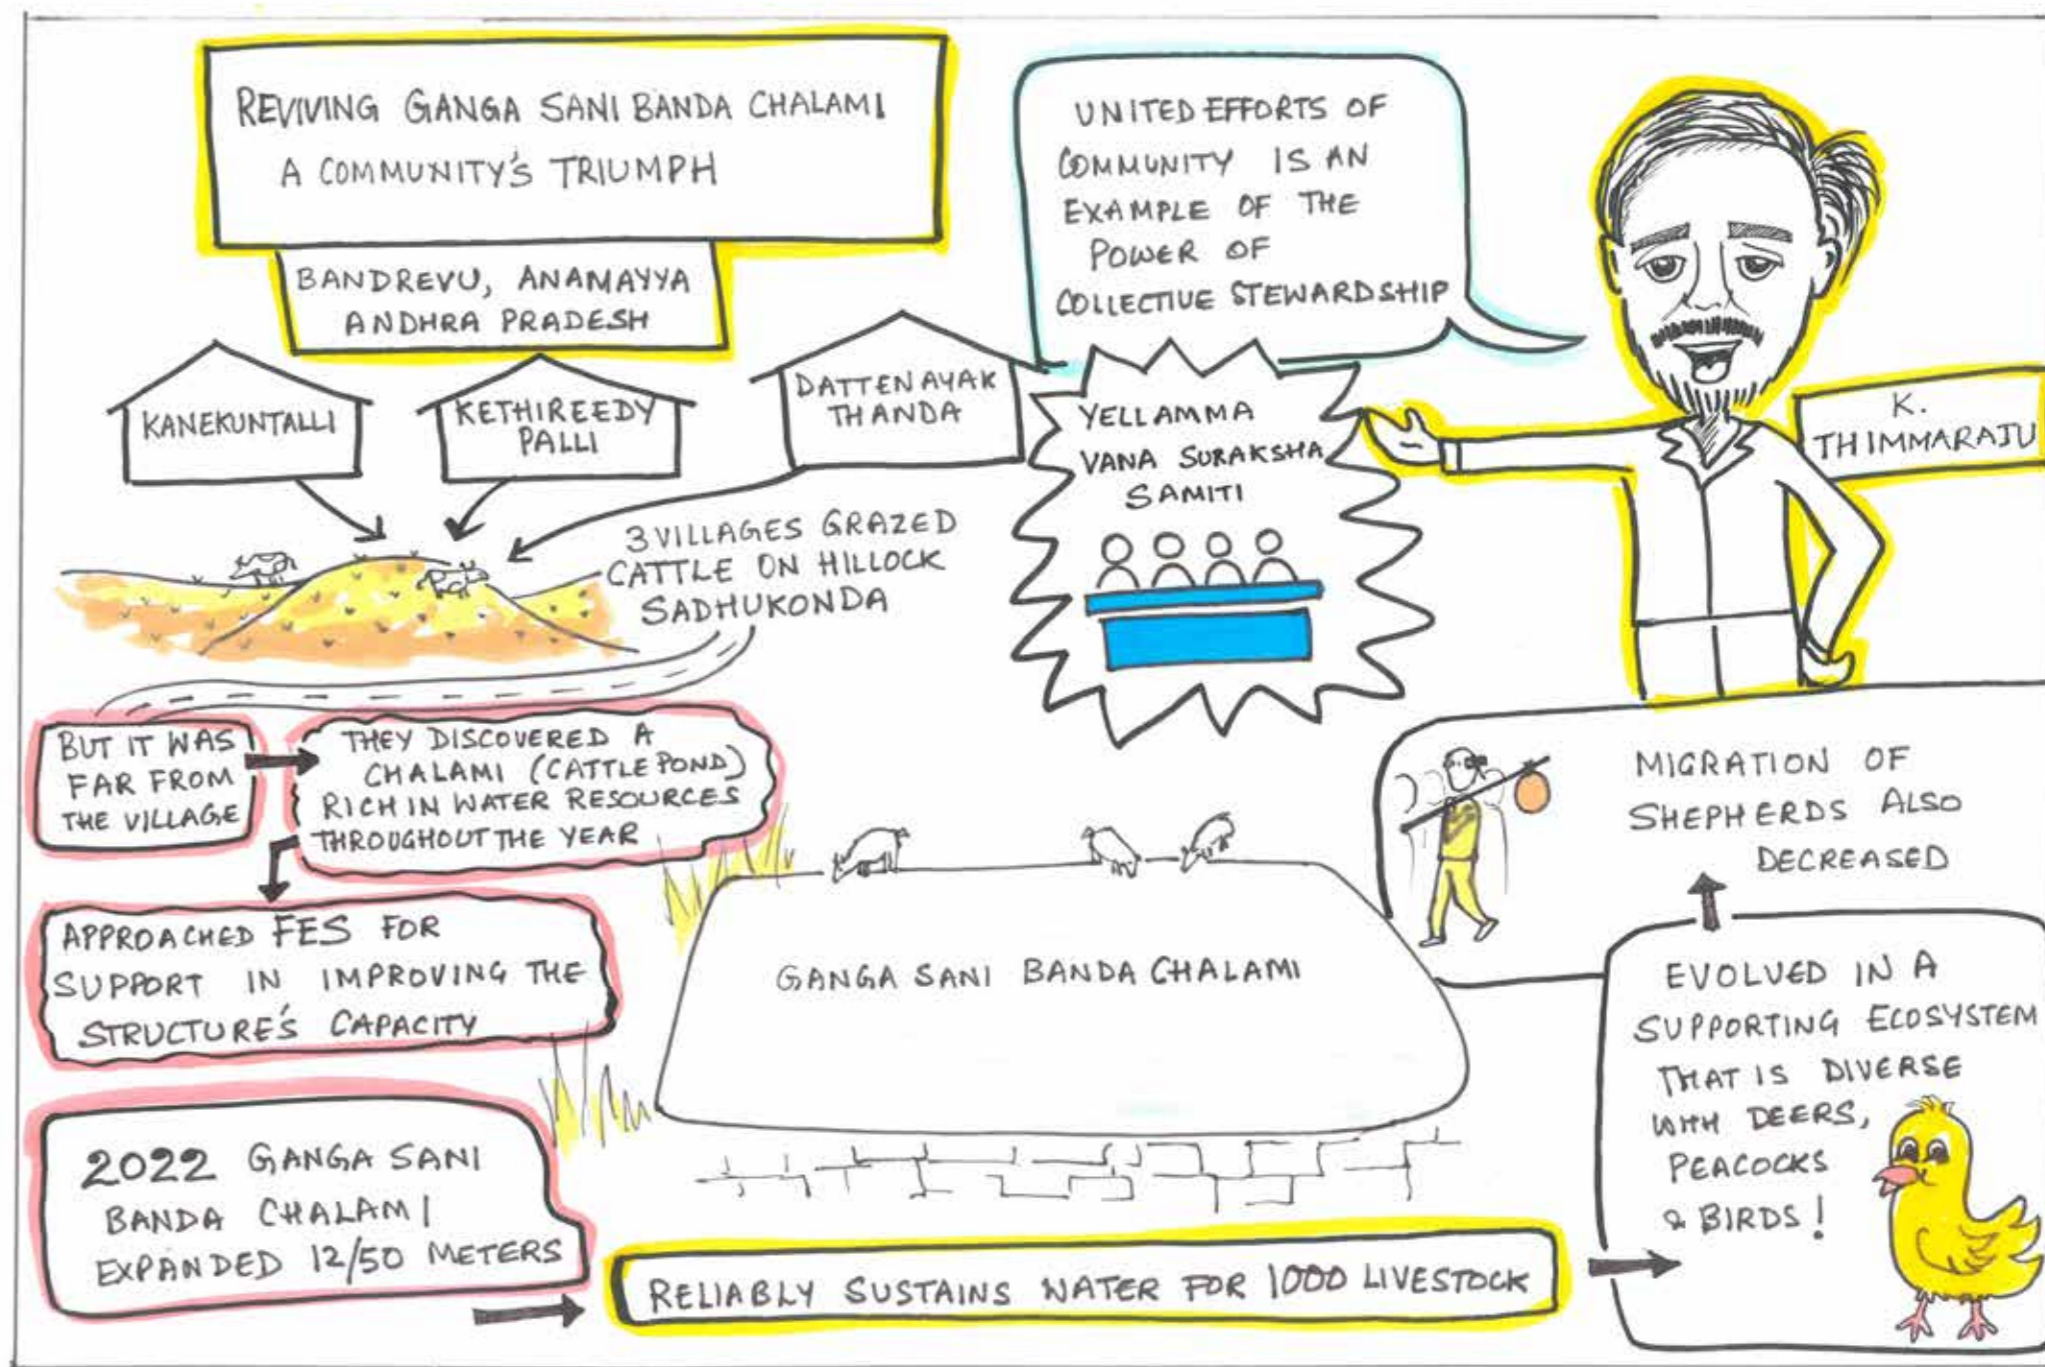 REVIVING GANGA SANI BANDA CHALAMI
A COMMUNITY'S TRIUMPH
BANDREVU, ANAMAYYA
ANDHRA PRADESH
UNITED EFFORTS OF
COMMUNITY IS AN
EXAMPLE OF THE
POWER OF
COLLECTIVE STEWARDSHIP
K.
THIMMARAJU
KANEKUNTALLI
KETHIREEDY
PALLI
DATTENAYAK
THANDA
YELLAMMA
VANA SURAKSHA
SAMITI
3 VILLAGES GRAZED
CATTLE ON HILLOCK
SADHUKONDA
BUT IT WAS
FAR FROM
THE VILLAGE
THEY DISCOVERED A
CHALAMI (CATTLE POND)
RICH IN WATER RESOURCES
THROUGHOUT THE YEAR
APPROACHED FES FOR
SUPPORT IN IMPROVING THE
STRUCTURE'S CAPACITY
2022 GANGA SANI
BANDA CHALAMI
EXPANDED 12/50 METERS
GANGA SANI BANDA CHALAMI
RELIABLY SUSTAINS WATER FOR 1000 LIVESTOCK
EVOLVED IN A
SUPPORTING ECOSYSTEM
THAT IS DIVERSE
WITH DEERS,
PEACOCKS
& BIRDS!
MIGRATION OF
SHEPHERDS ALSO
DECREASED